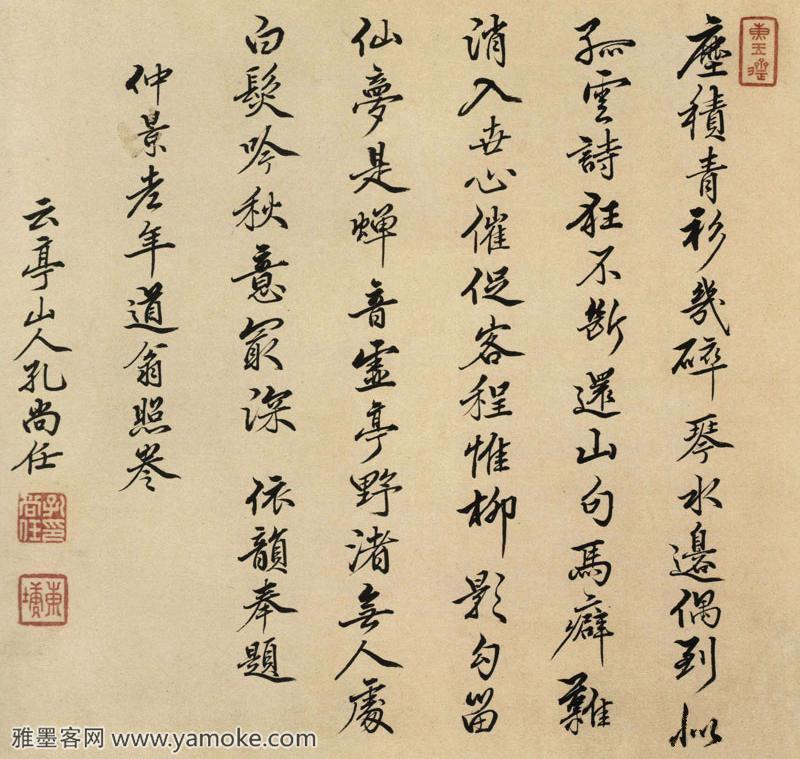 塵積青衫幾碎琴水邊偶到似
孤雲詩狂不斷還山句馬癖難
消入世心催促客程惟柳影勾留
仙夢是蟬音虛亭野渚無人處
白髮吟秋意最深 依韻奉題
仲景老年道翁照
云亭山人孔尚任
孔印尚任
東塘
雅墨客网 www.yamoke.com